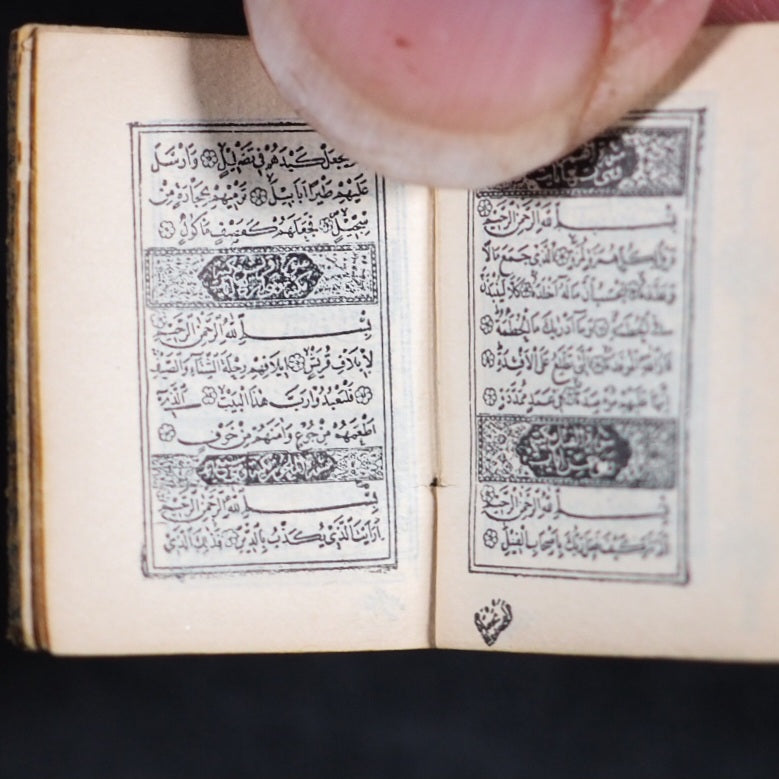 بِسْمِ اللهِ الرَّحْمٰنِ الرَّحِيمِ
هُمَزَةٍ لُمَزَةٍ الَّذِي جَمَعَ مَالًا
وَعَدَّدَهُ يَحْسَبُ أَنَّ مَالَهُ أَخْلَدَهُ كَلَّا لَيُنْبَذَنَّ
فِي الْحُطَمَةِ وَمَا أَدْرٰيكَ مَا الْحُطَمَةُ
نَارُ اللهِ الْمُوقَدَةُ الَّتِي تَطَّلِعُ عَلَى الْأَفْئِدَةِ
إِنَّهَا عَلَيْهِمْ مُؤْصَدَةٌ فِي عَمَدٍ مُمَدَّدَةٍ
بِسْمِ اللهِ الرَّحْمٰنِ الرَّحِيمِ
أَلَمْ تَرَ كَيْفَ فَعَلَ رَبُّكَ بِأَصْحَابِ الْفِيلِ
يَجْعَلْ كَيْدَهُمْ فِي تَضْلِيلٍ وَأَرْسَلَ
عَلَيْهِمْ طَيْرًا أَبَابِيلَ تَرْمِيهِمْ بِحِجَارَةٍ مِنْ
سِجِّيلٍ فَجَعَلَهُمْ كَعَصْفٍ مَأْكُولٍ
بِسْمِ اللهِ الرَّحْمٰنِ الرَّحِيمِ
لِإِيلَافِ قُرَيْشٍ إِيلَافِهِمْ رِحْلَةَ الشِّتَاءِ وَالصَّيْفِ
فَلْيَعْبُدُوا رَبَّ هٰذَا الْبَيْتِ الَّذِي
أَطْعَمَهُمْ مِنْ جُوعٍ وَآمَنَهُمْ مِنْ خَوْفٍ
بِسْمِ اللهِ الرَّحْمٰنِ الرَّحِيمِ
أَرَأَيْتَ الَّذِي يُكَذِّبُ بِالدِّينِ فَذٰلِكَ الَّذِي